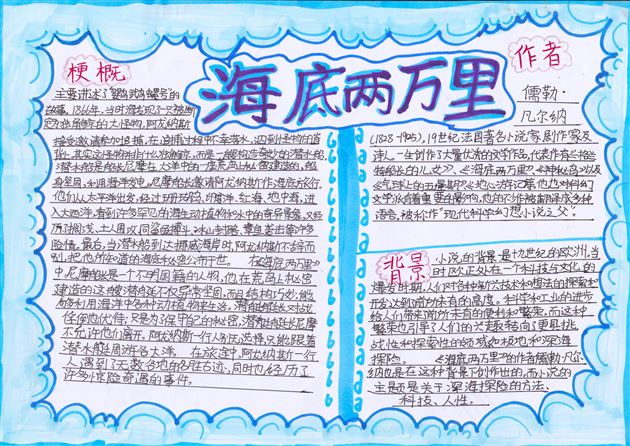 海底两万里
梗概
主要讲述了鹦鹉螺号的
故事。1866年,当时海上发现了一只被断
定为独角鲸的大怪物,阿龙纳斯
接受邀请参加追捕,在追捕过程中不幸落水,遇到怪物的脊
背。其实这怪物并非什么独角鲸,而是一艘构造奇妙的潜水船
潜水船是船长尼摩在大洋中的一座荒岛上秘密建造的,船
身坚固,利用海洋发电。尼摩船长邀请阿龙纳斯作海底旅行,
他们从太平洋出发,经过珊瑚岛、印度洋、红海、地中海,进
入大西洋,看到许多罕见的海生动植物和水中的奇异景象,又经
历了搁浅、土人围攻、同鲨鱼搏斗、冰山封路、章鱼袭击等许多
险情。最后,当潜水船到达挪威海岸时,阿龙纳斯不辞而
别,把他所知道的海底秘密公布于世。 在《海底两万里》
中,尼摩船长是一个不明国籍的人物,他在荒岛上秘密
建造的这艘潜艇不仅异常坚固,而且结构巧妙,能
够利用海洋中各种动植物来生活。潜艇船长对战
俘倒也优待;只是为了保守自己的秘密,潜艇船长尼摩
不允许他们离开。阿龙纳斯一行人别无选择,只能跟着
潜水艇周游各大洋。 在旅途中,阿龙纳斯一行
人遇到了无数各地的名胜古迹,同时也经历了
许多惊险奇遇的事件。
作者
儒勒·
凡尔纳
(1828-1905),19世纪法国著名小说家、剧作家及
诗人。一生创作了大量优秀的文学作品,代表作有《格兰
特船长的儿女》、《海底两万里》《神秘岛》以及
《气球上的五星期》《地心游记》等,他也对科幻
文学流派有着重要的影响,他的不作被翻译成多种
语言,被称作"现代科学幻想小说之父"。
背景
小说的背景是十九世纪的欧洲,当
时的人正处在一个科技与文化的
爆发时期,人们对各种新兴技术和想法的探索和
开发达到了前所未有的高度。科学和工业的进步
给人们带来前所未有的便利和繁荣,而这种
繁荣也引导了人们的兴趣转向了更具挑
战性和探索性的领域如极地和深海
探险。 《海底两万里》的作者儒勒·凡尔
纳也是在这种背景下创作出的,而小说的
主题是关于深海探险的方法、
科技、人性。